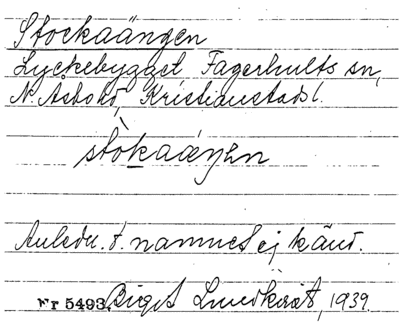 Stockaängen
Lyckebygget, Fagerhults sn,
N. Åsbo hd, Kristianstads l.
stòkaäŋen
Anledn. t. namnet ej känd.
Nr 5493. Birgit Lundkvist, 1939.